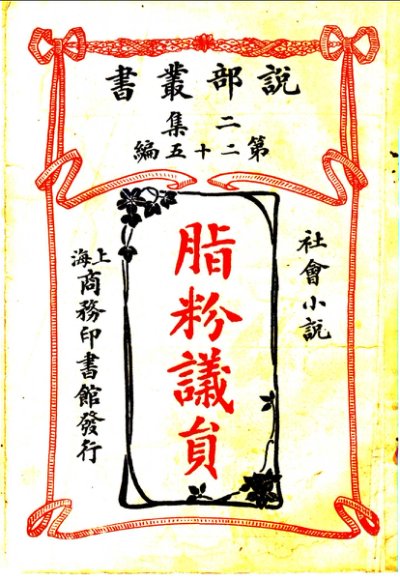 說部叢書
二集
第二十五編
社會小說
脂粉議員
上海
商務印書館發行